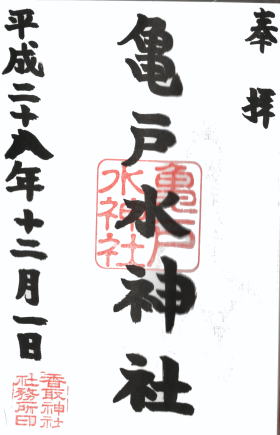 奉拝
亀戸水神社
亀戸
水神社
平成二十八年十二月一日
香取神社
社務所印